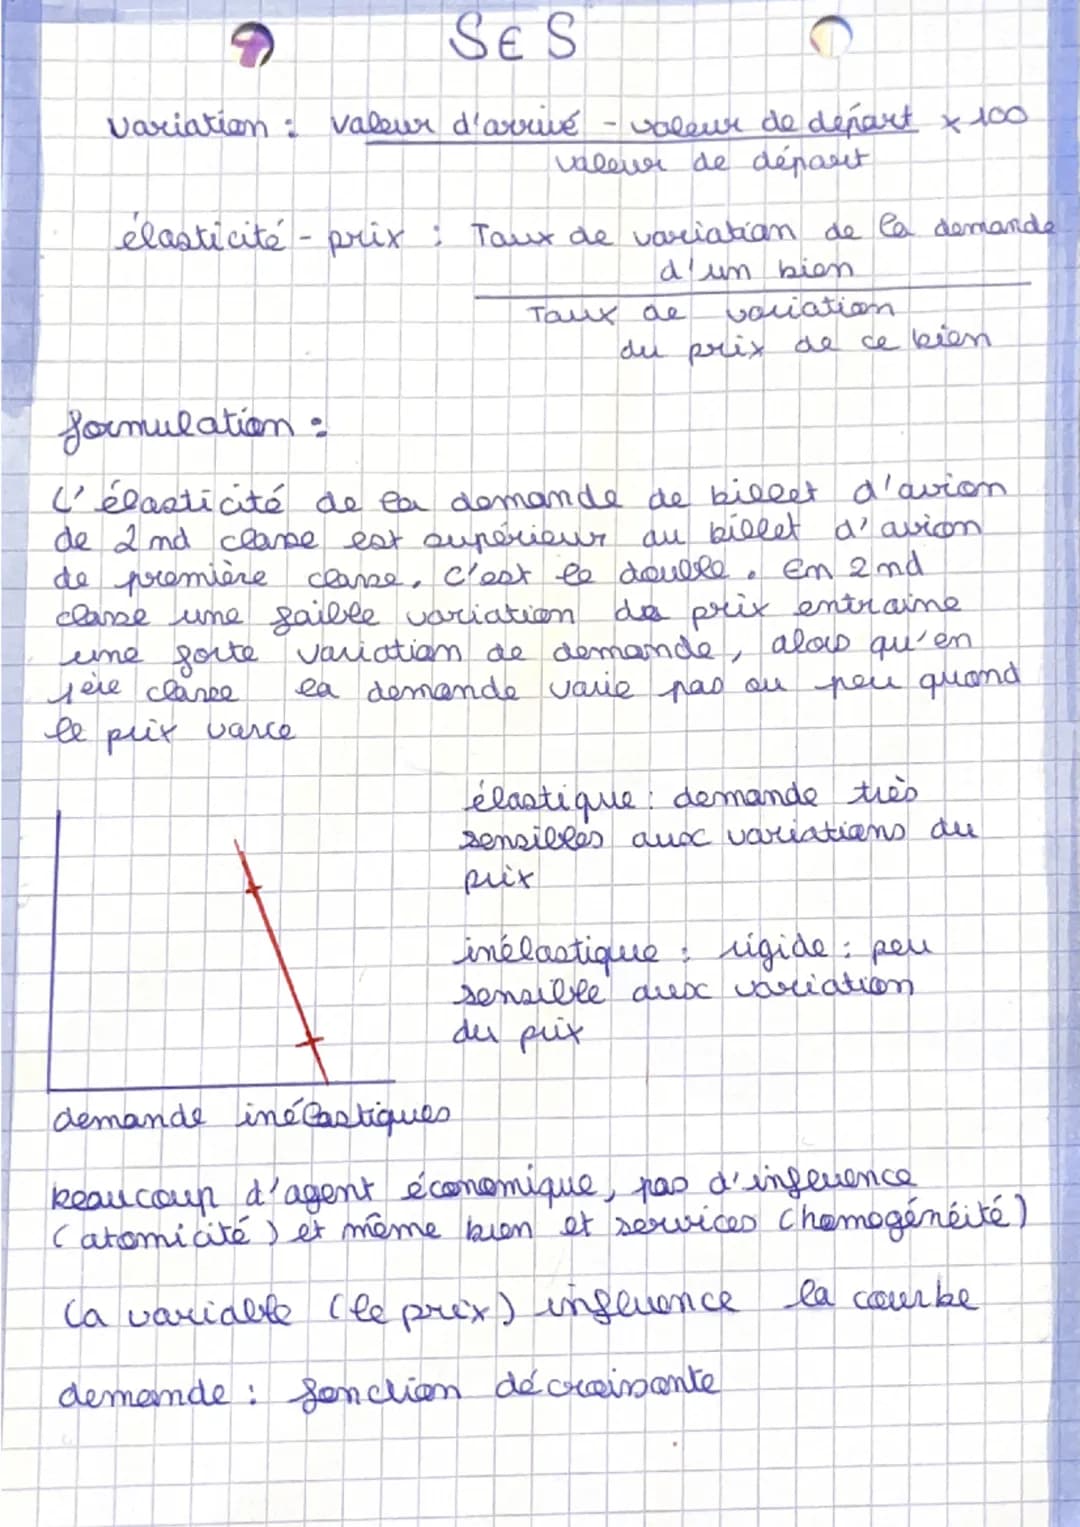 SES
variation : valeur d'arrivé - valeur de départ x 100
valeur de départ
élasticité - prix : Taux de variation de la demande
d'un bien
Taux de variation
du prix de ce bien
formulation :
L'élasticité de la demande de billet d'avion
de 2nd classe est supérieur au billet d'avion
de première classe, c'est le double. En 2nd
classe une faible variation de prix entraine
une forte variation de demande, alors qu'en
1ère classe la demande varie pas ou peu quand
le prix varie
élastique : demande très
sensibles aux variations du
prix
inélastique : rigide : peu
sensible aux variation
du prix
demande inélastiques
beaucoup d'agent économique, pas d'influence
(atomicité) et même bien et services (homogénéité)
la variable (le prix) influence la courbe
demande : fonction décroissante